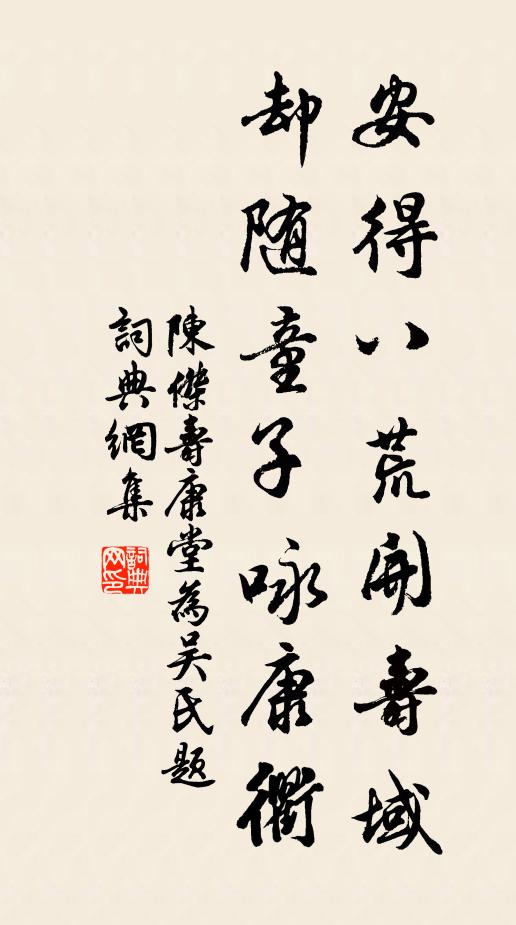 安得八荒開壽域
却随童子咏康衢
陳傑壽康堂為吴氏題
詞典網集
詞典
网印